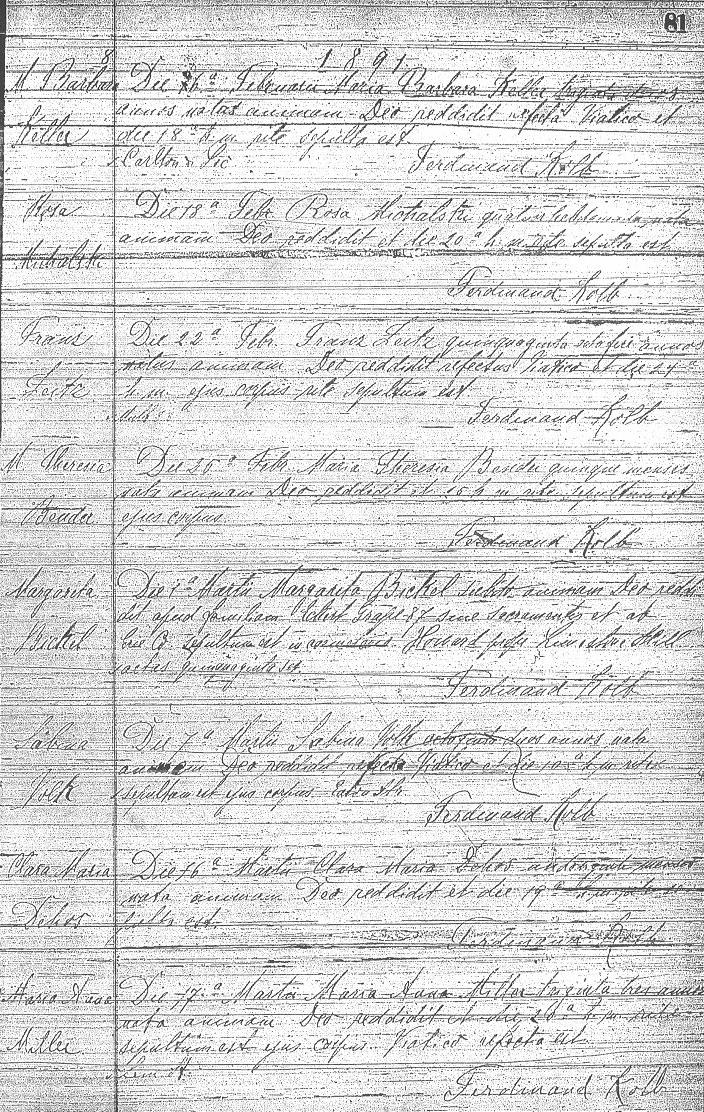 81
1891.
8
M Barbara Die 16ª Februarii Maria Barbara Keller triginta
annos natas animam Deo reddidit refecta Viatico et
Keller die 18ª h. m. rite sepulta est.
Carlton
Ferdinand Kolb
Rosa Die 18ª Febr. Rosa Michalski quatuor hebdomada nata
animam Deo reddidit et die 20ª h. m. rite sepulta est
Michalski
Ferdinand Kolb
Franz Die 22ª Febr. Franz Leitz quinquaginta annos
natus animam Deo reddidit refectus Viatico et die 24ª
Leitz h. m. ejus corpus rite sepultum est
Ferdinand Kolb
M Theresia Die 26ª Febr. Maria Theresia Bender quinque menses
nata animam Deo reddidit et h. m. rite sepultum est
Bender ejus corpus.
Ferdinand Kolb
Margarita Die 1ª Martii Margarita Bickel subito animam Deo reddi
dit apud familiam Grape 87 sine sacramentis et ab
Bickel sepultum est in Howard
aetas quinquaginta
Ferdinand Kolb
Sabina Die 7ª Martii Sabina Volk octoginta duos annos nata
animam Deo reddidit refecta Viatico et die 10ª h. m. rite
Volk sepultum est ejus corpus. Eaton Str.
Ferdinand Kolb
Clara Maria Die 16ª Martii Clara Maria menses
nata animam Deo reddidit et die 19ª h. m. rite se
pulta est.
Ferdinand Kolb
Maria Anna Die 17ª Martii Maria Anna Miller triginta tres annos
nata animam Deo reddidit et die 20ª h. m. rite
Miller sepultum est ejus corpus. Viatico refecta est
Ferdinand Kolb